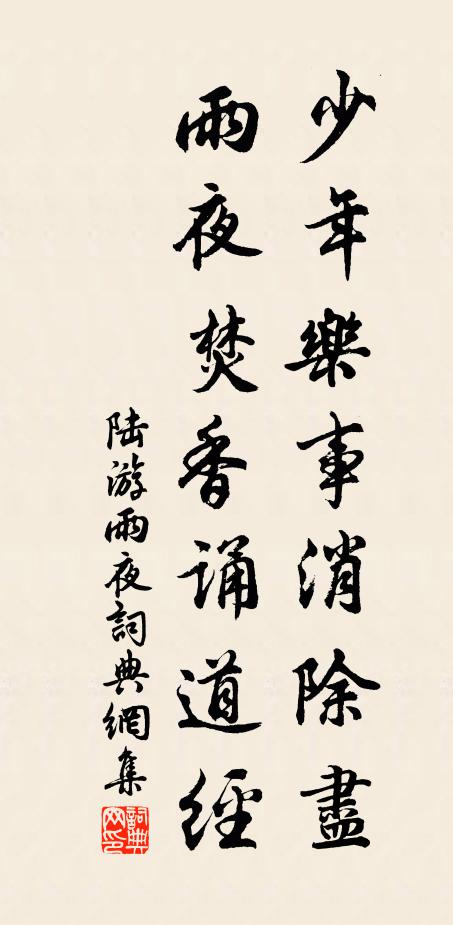 少年樂事消除盡
雨夜焚香誦道經
陆游雨夜詞典網集
詞典网印